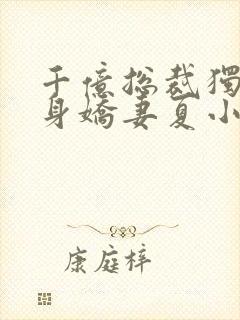 千億總裁獨
身嬌妻夏小
康庭梓